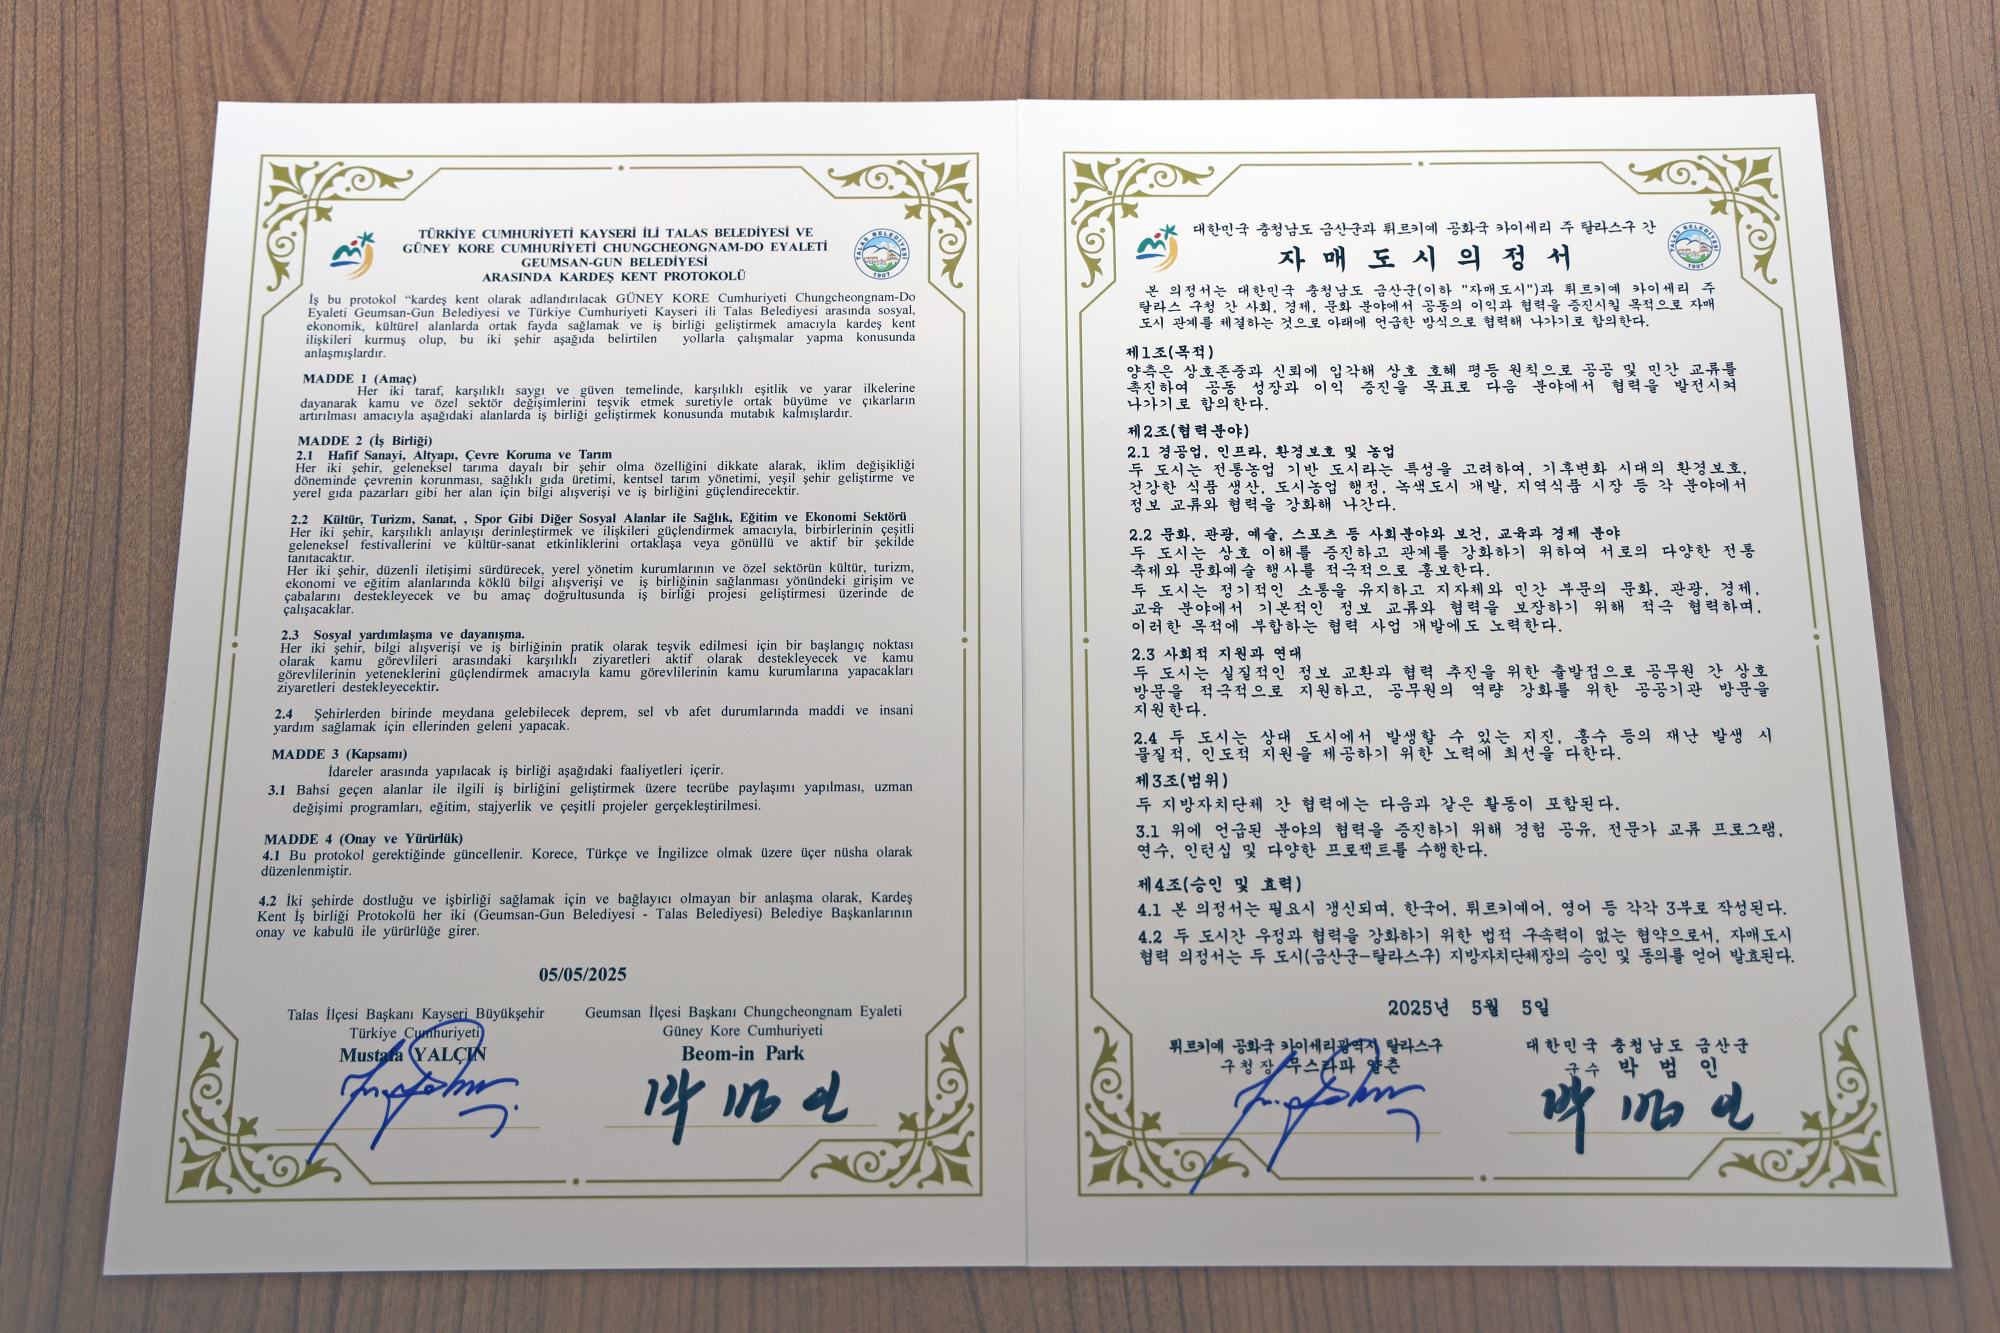 TÜRKİYE CUMHURİYETİ KAYSERİ İLİ TALAS BELEDİYESİ VE
GÜNEY KORE CUMHURİYETİ CHUNGCHEONGNAM-DO EYALETİ
GEUMSAN-GUN BELEDİYESİ
ARASINDA KARDEŞ KENT PROTOKOLÜ
TALAS BELEDİYESİ
1907
İş bu protokol “kardeş kent olarak adlandırılacak GÜNEY KORE Cumhuriyeti Chungcheongnam-Do
Eyaleti Geumsan-Gun Belediyesi ve Türkiye Cumhuriyeti Kayseri ili Talas Belediyesi arasında sosyal,
ekonomik, kültürel alanlarda ortak fayda sağlamak ve iş birliği geliştirmek amacıyla kardeş kent
ilişkileri kurmuş olup, bu iki şehir aşağıda belirtilen yollarla çalışmalar yapma konusunda
anlaşmışlardır.
MADDE 1 (Amaç)
Her iki taraf, karşılıklı saygı ve güven temelinde, karşılıklı eşitlik ve yarar ilkelerine
dayanarak kamu ve özel sektör değişimlerini teşvik etmek suretiyle ortak büyüme ve çıkarların
artırılması amacıyla aşağıdaki alanlarda iş birliği geliştirmek konusunda mutabık kalmışlardır.
MADDE 2 (İş Birliği)
2.1 Hafif Sanayi, Altyapı, Çevre Koruma ve Tarım
Her iki şehir, geleneksel tarıma dayalı bir şehir olma özelliğini dikkate alarak, iklim değişikliği
döneminde çevrenin korunması, sağlıklı gıda üretimi, kentsel tarım yönetimi, yeşil şehir geliştirme ve
yerel gıda pazarları gibi her alan için bilgi alışverişi ve iş birliğini güçlendirecektir.
2.2 Kültür, Turizm, Sanat, , Spor Gibi Diğer Sosyal Alanlar ile Sağlık, Eğitim ve Ekonomi Sektörü
Her iki şehir, karşılıklı anlayışı derinleştirmek ve ilişkileri güçlendirmek amacıyla, birbirlerinin çeşitli
geleneksel festivallerini ve kültür-sanat etkinliklerini ortaklaşa veya gönüllü ve aktif bir şekilde
tanıtacaktır.
Her iki şehir, düzenli iletişimi sürdürecek, yerel yönetim kurumlarının ve özel sektörün kültür, turizm,
ekonomi ve eğitim alanlarında köklü bilgi alışverişi ve iş birliğinin sağlanması yönündeki girişim ve
çabalarını destekleyecek ve bu amaç doğrultusunda iş birliği projesi geliştirmesi üzerinde de
çalışacaklar.
2.3 Sosyal yardımlaşma ve dayanışma.
Her iki şehir, bilgi alışverişi ve iş birliğinin pratik olarak teşvik edilmesi için bir başlangıç noktası
olarak kamu görevlileri arasındaki karşılıklı ziyaretleri aktif olarak destekleyecek ve kamu
görevlilerinin yeteneklerini güçlendirmek amacıyla kamu görevlilerinin kamu kurumlarına yapacakları
ziyaretleri destekleyecektir.
2.4 Şehirlerden birinde meydana gelebilecek deprem, sel vb afet durumlarında maddi ve insani
yardım sağlamak için ellerinden geleni yapacak.
MADDE 3 (Kapsamı)
İdareler arasında yapılacak iş birliği aşağıdaki faaliyetleri içerir.
3.1 Bahsi geçen alanlar ile ilgili iş birliğini geliştirmek üzere tecrübe paylaşımı yapılması, uzman
değişimi programları, eğitim, stajyerlik ve çeşitli projeler gerçekleştirilmesi.
MADDE 4 (Onay ve Yürürlük)
4.1 Bu protokol gerektiğinde güncellenir. Korece, Türkçe ve İngilizce olmak üzere üçer nüsha olarak
düzenlenmiştir.
4.2 İki şehirde dostluğu ve işbirliği sağlamak için ve bağlayıcı olmayan bir anlaşma olarak, Kardeş
Kent İş birliği Protokolü her iki (Geumsan-Gun Belediyesi - Talas Belediyesi) Belediye Başkanlarının
onay ve kabulü ile yürürlüğe girer.
05/05/2025
Talas İlçesi Başkanı Kayseri Büyükşehir
Türkiye Cumhuriyeti
Mustafa YALÇIN
Geumsan İlçesi Başkanı Chungcheongnam Eyaleti
Güney Kore Cumhuriyeti
Beom-in Park
박 범 인
대한민국 충청남도 금산군과 튀르키예 공화국 카이세리 주 탈라스구 간
자매도시의정서
TALAS BELEDİYESİ
1907
본 의정서는 대한민국 충청남도 금산군(이하 "자매도시")과 튀르키예 카이세리 주
탈라스 구청 간 사회, 경제, 문화 분야에서 공동의 이익과 협력을 증진시킬 목적으로 자매
도시 관계를 체결하는 것으로 아래에 언급한 방식으로 협력해 나가기로 합의한다.
제1조(목적)
양측은 상호존중과 신뢰에 입각해 상호 호혜 평등 원칙으로 공공 및 민간 교류를
촉진하여 공동 성장과 이익 증진을 목표로 다음 분야에서 협력을 발전시켜
나가기로 합의한다.
제2조(협력분야)
2.1 경공업, 인프라, 환경보호 및 농업
두 도시는 전통농업 기반 도시라는 특성을 고려하여, 기후변화 시대의 환경보호,
건강한 식품 생산, 도시농업 행정, 녹색도시 개발, 지역식품 시장 등 각 분야에서
정보 교류와 협력을 강화해 나간다.
2.2 문화, 관광, 예술, 스포츠 등 사회분야와 보건, 교육과 경제 분야
두 도시는 상호 이해를 증진하고 관계를 강화하기 위하여 서로의 다양한 전통
축제와 문화예술 행사를 적극적으로 홍보한다.
두 도시는 정기적인 소통을 유지하고 지자체와 민간 부문의 문화, 관광, 경제,
교육 분야에서 기본적인 정보 교류와 협력을 보장하기 위해 적극 협력하며,
이러한 목적에 부합하는 협력 사업 개발에도 노력한다.
2.3 사회적 지원과 연대
두 도시는 실질적인 정보 교환과 협력 추진을 위한 출발점으로 공무원 간 상호
방문을 적극적으로 지원하고, 공무원의 역량 강화를 위한 공공기관 방문을
지원한다.
2.4 두 도시는 상대 도시에서 발생할 수 있는 지진, 홍수 등의 재난 발생 시
물질적, 인도적 지원을 제공하기 위한 노력에 최선을 다한다.
제3조(범위)
두 지방자치단체 간 협력에는 다음과 같은 활동이 포함된다.
3.1 위에 언급된 분야의 협력을 증진하기 위해 경험 공유, 전문가 교류 프로그램,
연수, 인턴십 및 다양한 프로젝트를 수행한다.
제4조(승인 및 효력)
4.1 본 의정서는 필요시 갱신되며, 한국어, 튀르키예어, 영어 등 각각 3부로 작성된다.
4.2 두 도시간 우정과 협력을 강화하기 위한 법적 구속력이 없는 협약으로서, 자매도시
협력 의정서는 두 도시(금산군-탈라스구) 지방자치단체장의 승인 및 동의를 얻어 발효된다.
2025년 5월 5일
튀르키예 공화국 카이세리광역시 탈라스구
구청장 무스타파 얄츤
대한민국 충청남도 금산군
군수 박 범 인
박 범 인